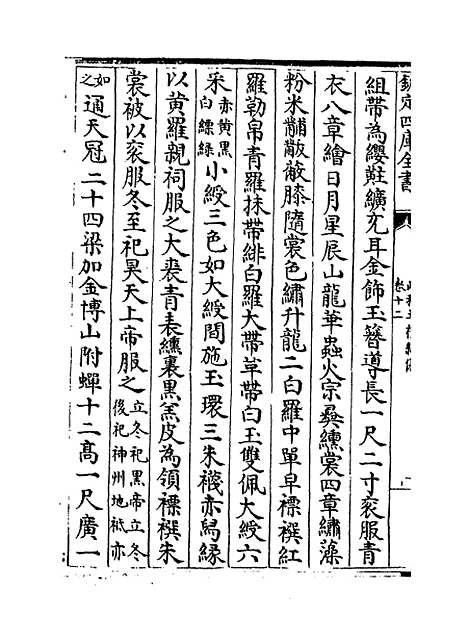 欽定四庫全書
卷十二
組帶為纓黈纊充耳金飾玉簪導長一尺二寸衮服青
衣八章繪日月星辰山龍華蟲火宗彛纁裳四章繡藻
粉米黼黻蔽膝隨裳色繡升龍二白羅中單皁褾襈紅
羅勒帛青羅抹帶緋白羅大帶革帶白玉雙佩大綬六
采赤黄黑白縹緑小綬三色如大綬間施玉環三朱襪赤舄緣
以黄羅親祠服之大裘青表纁裏黒羔皮為領褾襈朱
裳被以衮服冬至祀昊天上帝服之立冬祀黑帝立冬後祀神州地祗亦
如之通天冠二十四梁加金博山附蟬十二髙一尺廣一